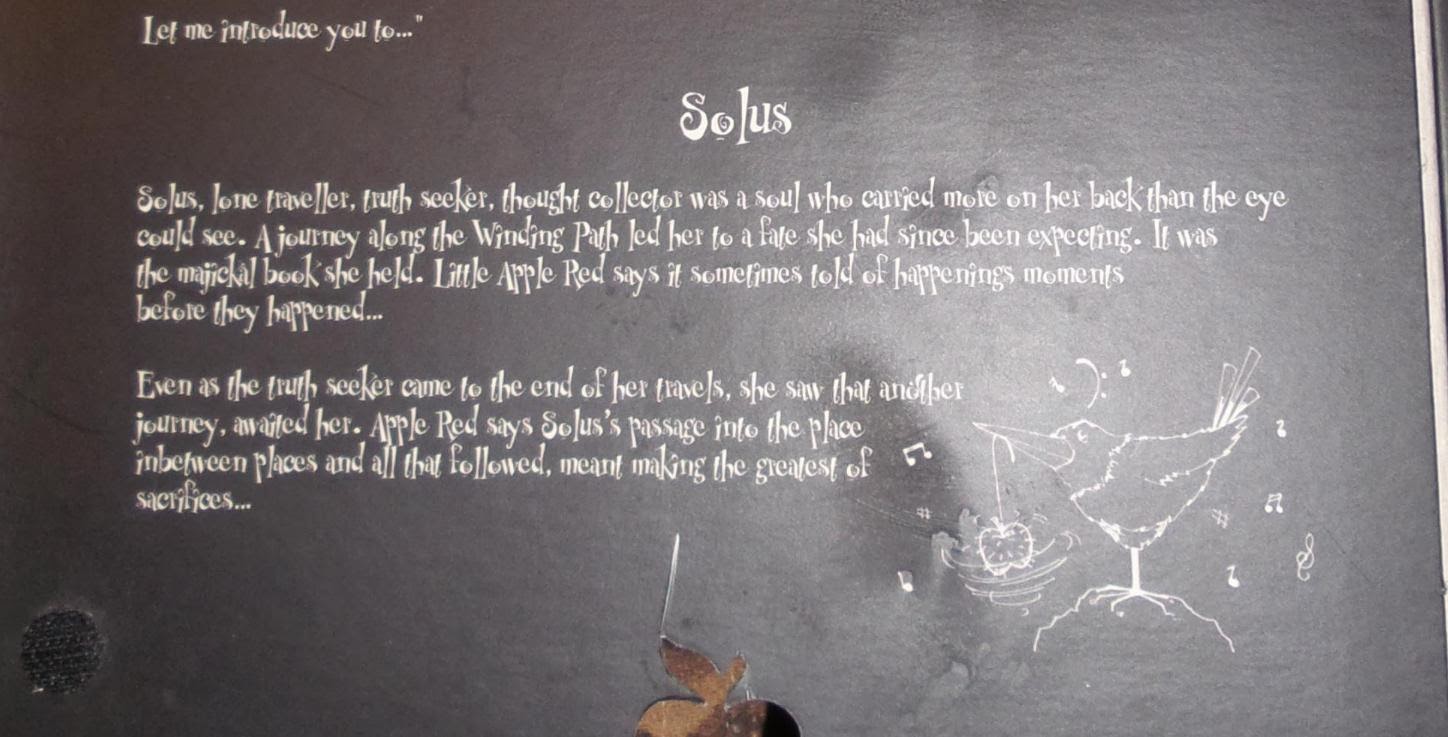 Let me introduce you to..."
Solus
Solus, lone traveller, truth seeker, thought collector was a soul who carried more on her back than the eye
could see. A journey along the Winding Path led her to a fate she had since been expecting. It was
the majickal book she held. Little Apple Red says it sometimes told of happenings moments
before they happened...
Even as the truth seeker came to the end of her travels, she saw that another
journey, awaited her. Apple Red says Solus's passage into the place
inbetween places and all that followed, meant making the greatest of
sacrifices...